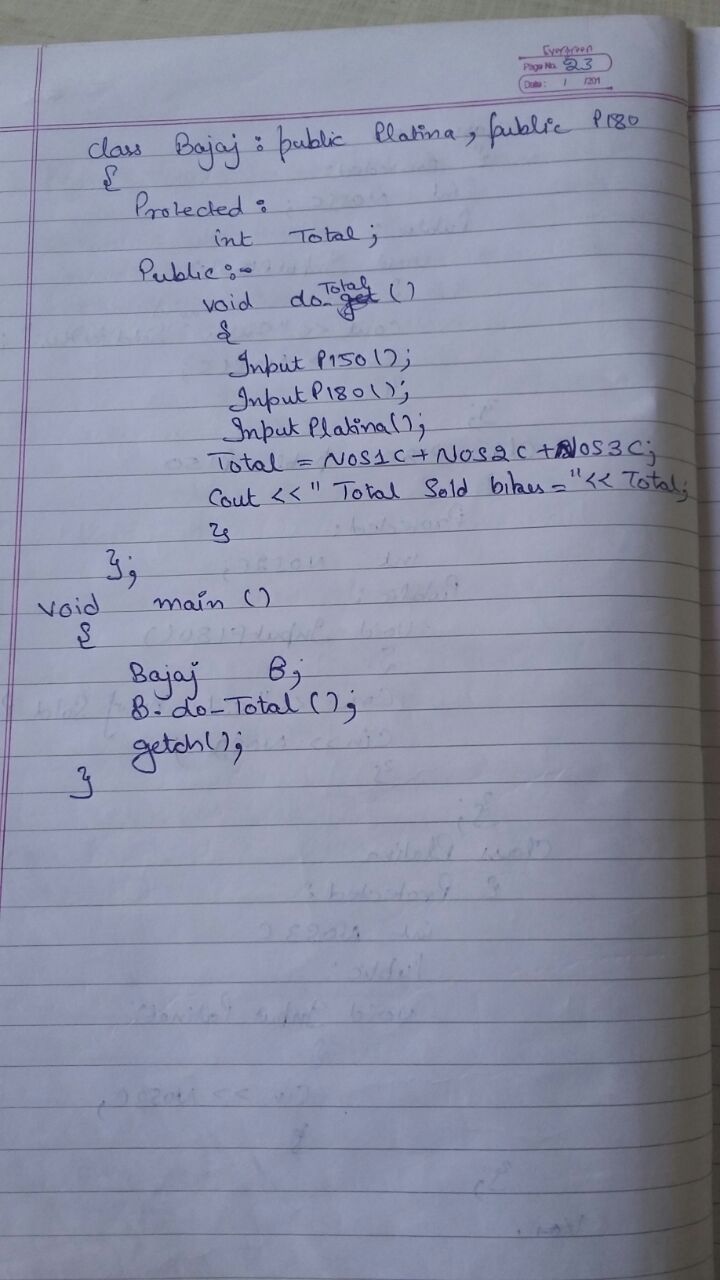 Evergreen
Page No. 23
Date: / /201
class Bajaj : public Platina, public P180
{
Protected :
int Total;
Public :-
void do-Total ()
{
Input P150 ();
Input P180 ();
Input Platina();
Total = NOS1C + NOS2C + NOS3C;
Cout << " Total Sold bikes = " << Total;
}
};
void main ()
{
Bajaj B;
B. do-Total ();
getch();
}